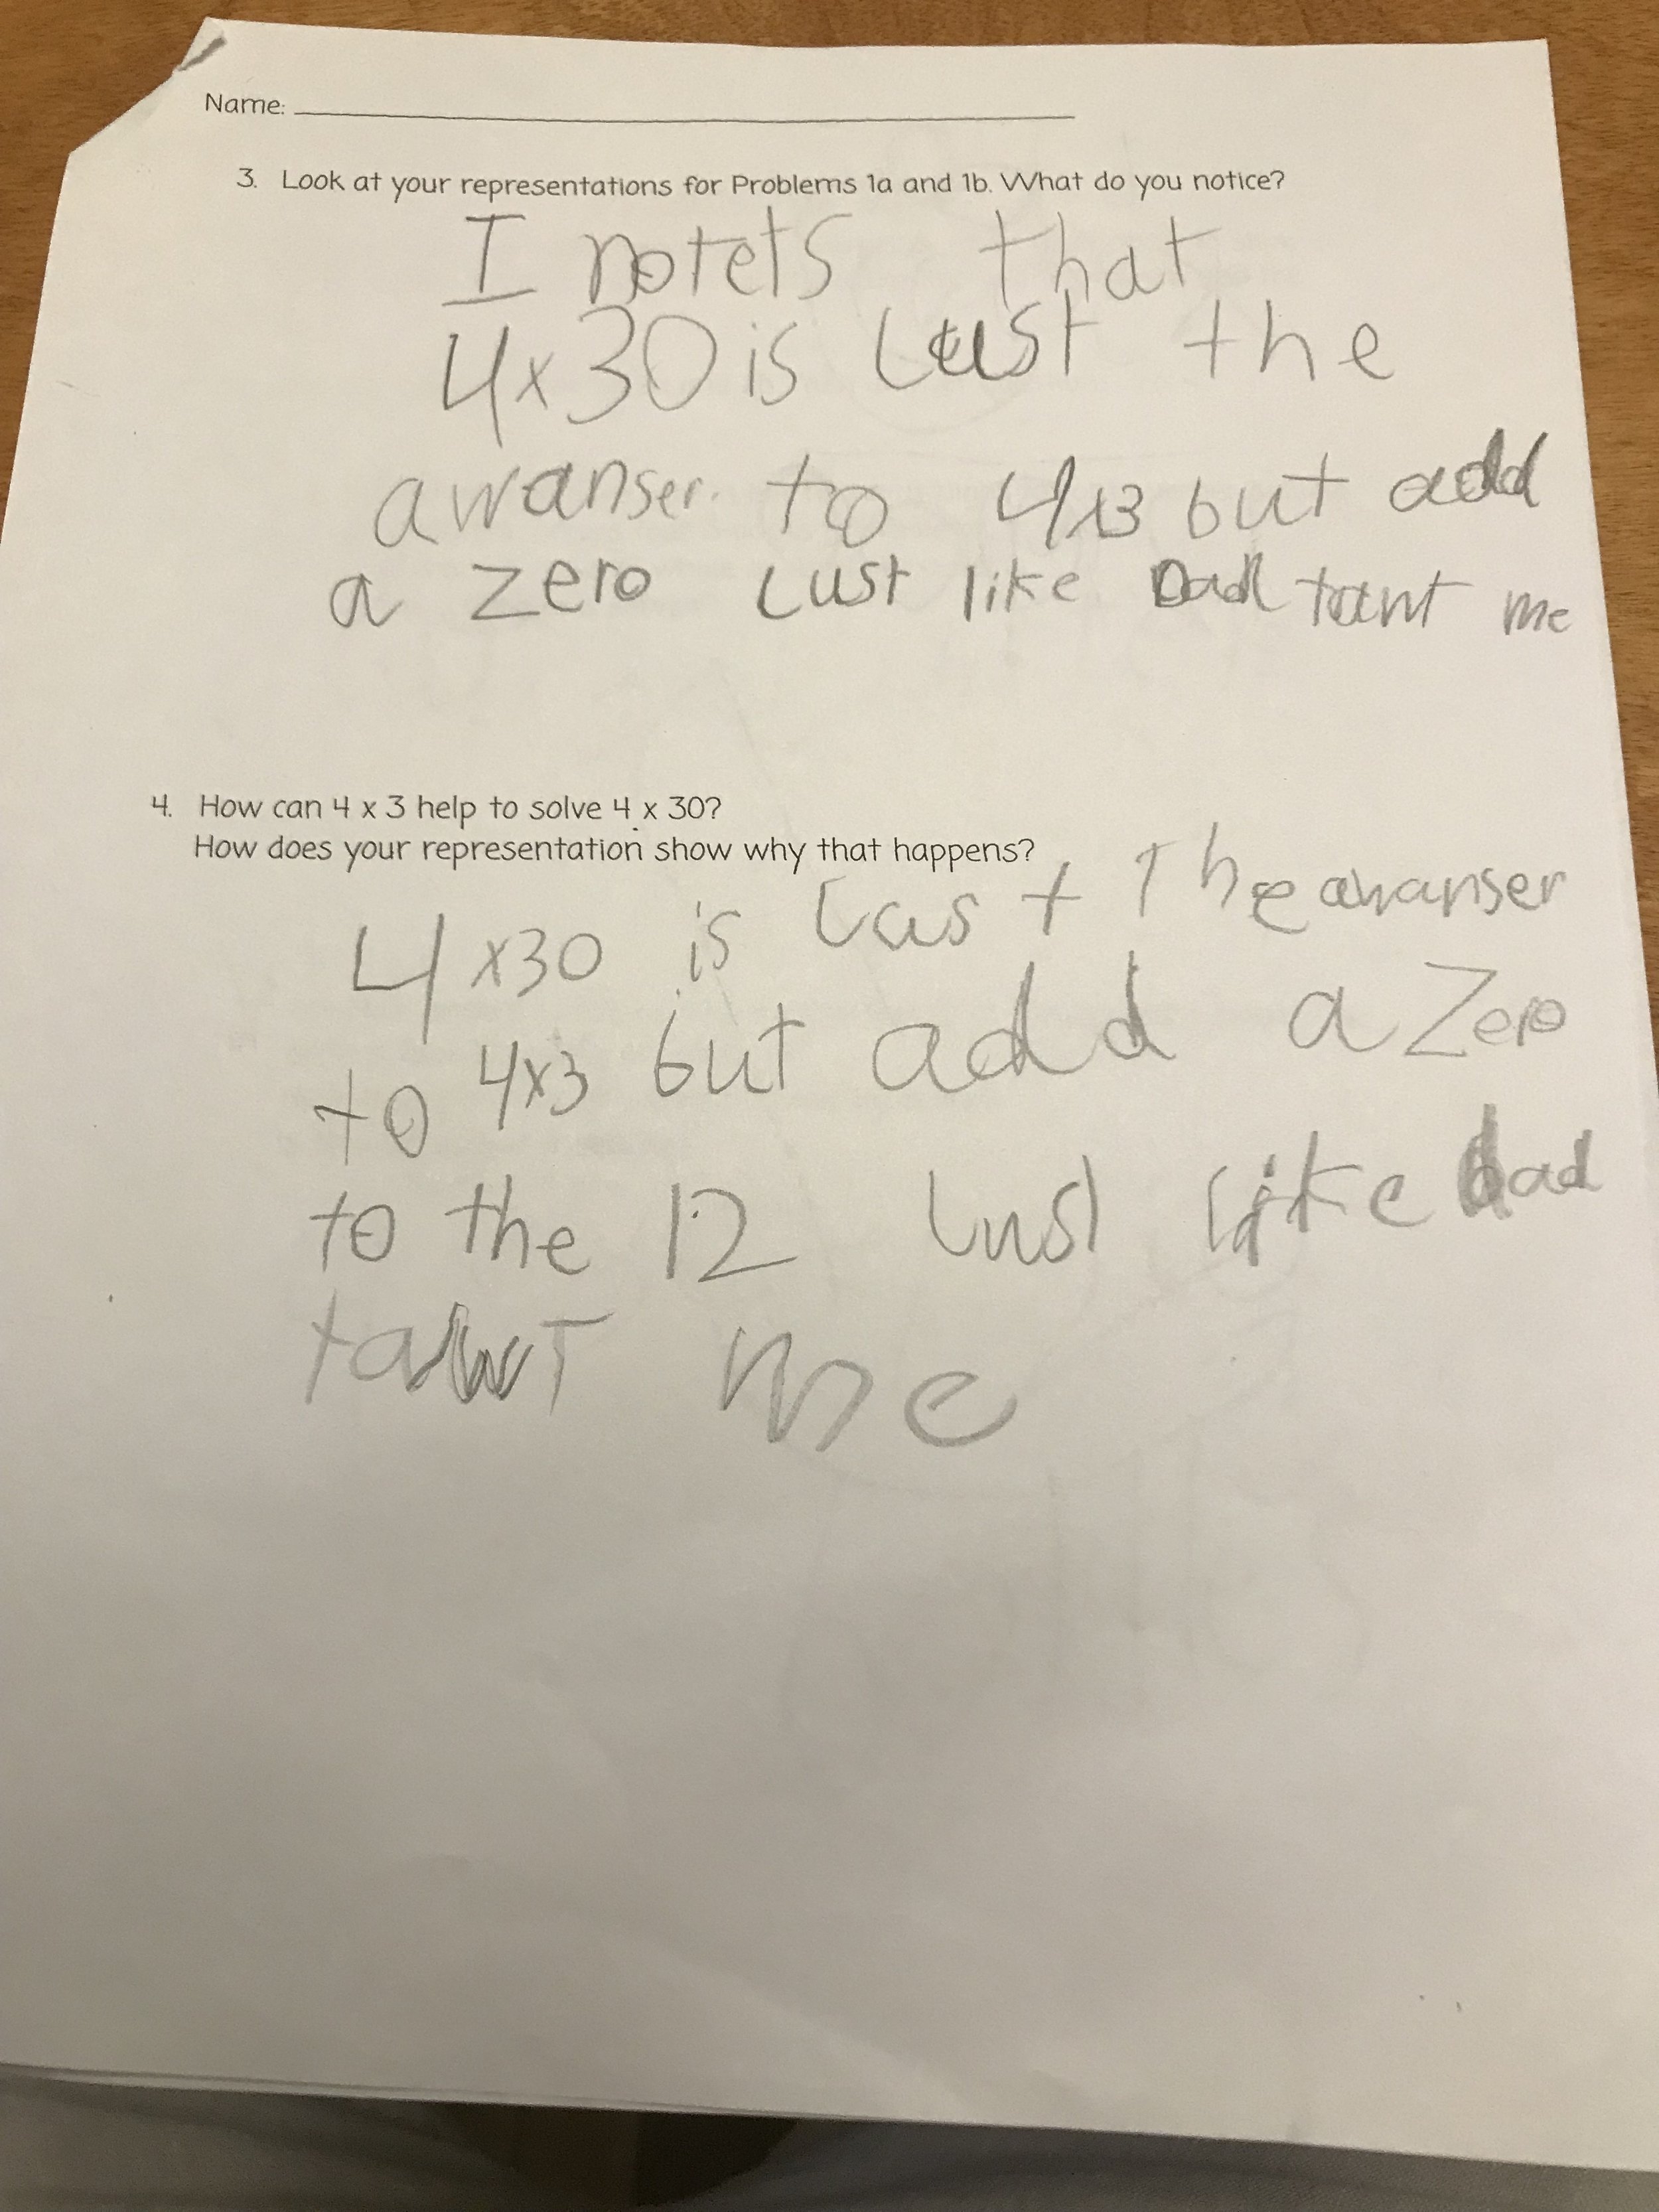 Name:
3. Look at your representations for Problems 1a and 1b. What do you notice?
I notets that
4x30 is Lust the
awanser. to 4x3 but add
a zero Lust like Dad tant me
4. How can 4 x 3 help to solve 4 x 30?
How does your representation show why that happens?
4x30 is Lust The awanser
to 4x3 but add a Zero
to the 12 Lust like dad
tawT me